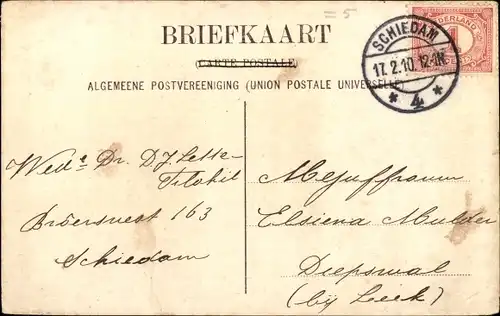 = 5
BRIEFKAART
CARTE POSTALE
ALGEMEENE POSTVEREENIGING (UNION POSTALE UNIVERSELLE)
SCHIEDAM
17.2.10.12-1N.
* 4 *
NEDERLAND
1
CENT
Wede Dr. D.J. Lette-
Broersvest 163
Schiedam
Mejuffrouw
Elsiena Mulder
Diepswal
(bij Leek)